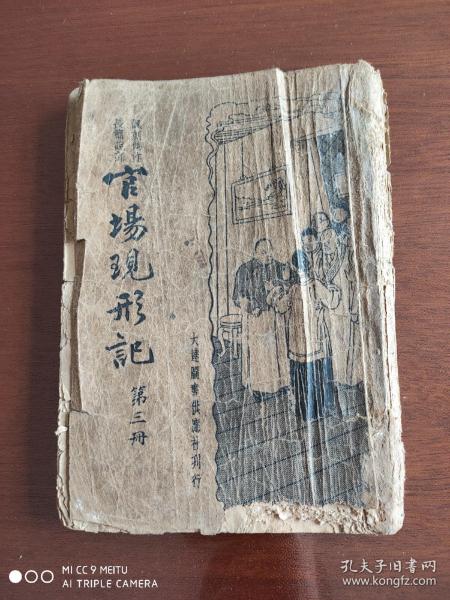 官場現形記
第三冊
大達圖書供應社刊行
MI CC 9 MEITU
AI TRIPLE CAMERA
孔夫子旧书网
www.kongfz.com